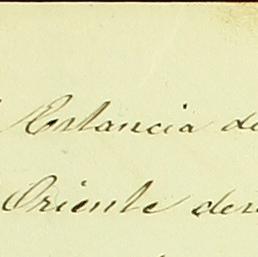 Estancia de
Oriente der